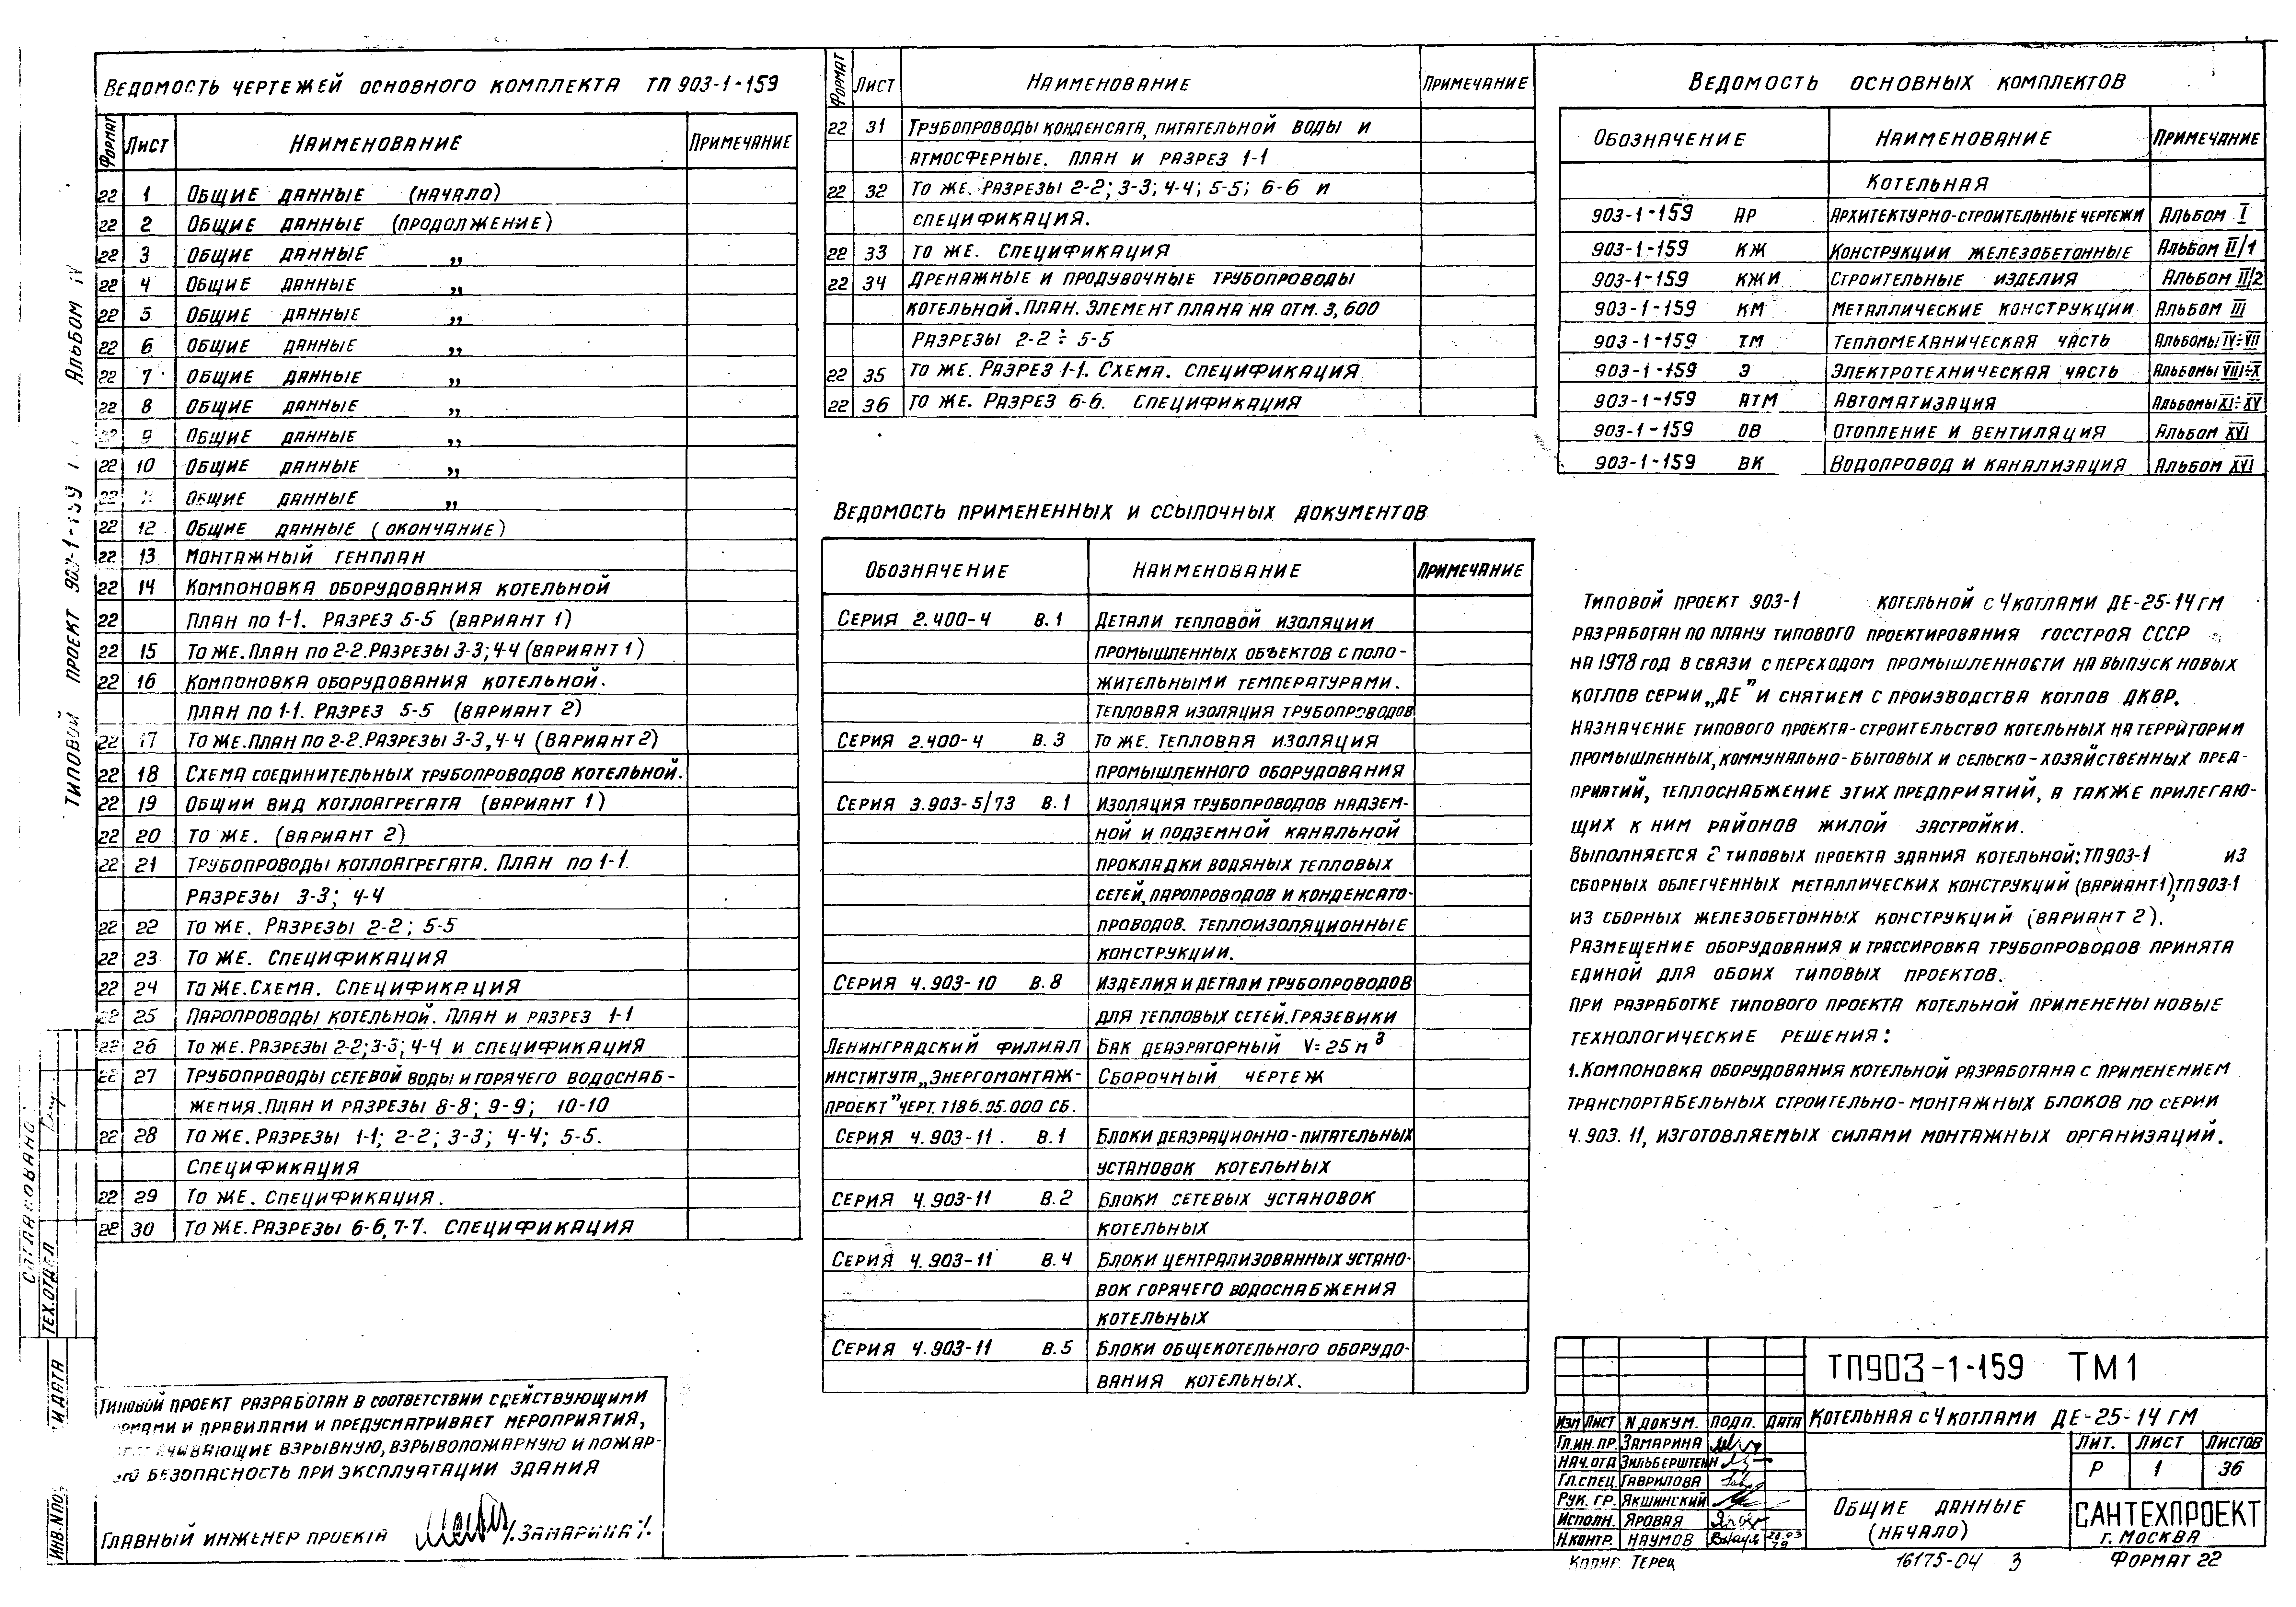 Ведомость чертежей основного комплекта ТП 903-1-159
Формат Лист Наименование Примечание
22 1 Общие данные (начало)
22 2 Общие данные (продолжение)
22 3 Общие данные „
22 4 Общие данные „
22 5 Общие данные „
22 6 Общие данные „
22 7 Общие данные „
22 8 Общие данные „
22 9 Общие данные „
22 10 Общие данные „
22 11 Общие данные „
22 12 Общие данные (окончание)
22 13 Монтажный генплан
22 14 Компоновка оборудования котельной
22 План по 1-1. Разрез 5-5 (вариант 1)
22 15 То же. План по 2-2. Разрезы 3-3; 4-4 (вариант 1)
22 16 Компоновка оборудования котельной.
План по 1-1. Разрез 5-5 (вариант 2)
22 17 То же. План по 2-2. Разрезы 3-3, 4-4 (вариант 2)
22 18 Схема соединительных трубопроводов котельной.
22 19 Общий вид котлоагрегата (вариант 1)
22 20 То же. (вариант 2)
22 21 Трубопроводы котлоагрегата. План по 1-1.
Разрезы 3-3; 4-4
22 22 То же. Разрезы 2-2; 5-5
22 23 То же. Спецификация
22 24 То же. Схема. Спецификация
22 25 Паропроводы котельной. План и разрез 1-1
22 26 То же. Разрезы 2-2; 3-3; 4-4 и спецификация
22 27 Трубопроводы сетевой воды и горячего водоснаб-
жения. План и разрезы 8-8; 9-9; 10-10
22 28 То же. Разрезы 1-1; 2-2; 3-3; 4-4; 5-5.
Спецификация
22 29 То же. Спецификация.
22 30 То же. Разрезы 6-6, 7-7. Спецификация
Типовой проект разработан в соответствии с действующими
нормами и правилами и предусматривает мероприятия,
взрывную, взрывопожарную и пожар-
безопасность при эксплуатации здания
Главный инженер проекта /.Замарина/.
Типовой проект 903-1-159 Альбом IV
Согласовано:
Тех.отдел
и дата
Инв.N
Формат Лист Наименование Примечание
22 31 Трубопроводы конденсата, питательной воды и
атмосферные. План и разрез 1-1
22 32 То же. Разрезы 2-2; 3-3; 4-4; 5-5; 6-6 и
спецификация.
22 33 То же. Спецификация
22 34 Дренажные и продувочные трубопроводы
котельной. План. Элемент плана на отм. 3,600
Разрезы 2-2 ÷ 5-5
22 35 То же. Разрез 1-1. Схема. Спецификация
22 36 То же. Разрез 6-6. Спецификация
Ведомость примененных и ссылочных документов
Обозначение Наименование Примечание
Серия 2.400-4 В.1 Детали тепловой изоляции
промышленных объектов с поло-
жительными температурами.
Тепловая изоляция трубопроводов
Серия 2.400-4 В.3 То же. Тепловая изоляция
промышленного оборудования
Серия 3.903-5/73 В.1 Изоляция трубопроводов надзем-
ной и подземной канальной
прокладки водяных тепловых
сетей, паропроводов и конденсато-
проводов. Теплоизоляционные
конструкции.
Серия 4.903-10 В.8 Изделия и детали трубопроводов
для тепловых сетей. Грязевики
Ленинградский филиал Бак деаэраторный V=25 м³
института „Энергомонтаж- Сборочный чертеж
проект" черт. Т186.05.000 СБ.
Серия 4.903-11. В.1 Блоки деаэрационно-питательных
установок котельных
Серия 4.903-11 В.2 Блоки сетевых установок
котельных
Серия 4.903-11 В.4 Блоки централизованных устано-
вок горячего водоснабжения
котельных
Серия 4.903-11 В.5 Блоки общекотельного оборудо-
вания котельных.
Ведомость основных комплектов
Обозначение Наименование Примечание
Котельная
903-1-159 АР Архитектурно-строительные чертежи Альбом I
903-1-159 КЖ Конструкции железобетонные Альбом II/1
903-1-159 КЖИ Строительные изделия Альбом II/2
903-1-159 КМ Металлические конструкции Альбом III
903-1-159 ТМ Тепломеханическая часть Альбомы IV÷VII
903-1-159 Э Электротехническая часть Альбомы VIII÷X
903-1-159 АТМ Автоматизация Альбомы XI÷XV
903-1-159 ОВ Отопление и вентиляция Альбом XVI
903-1-159 ВК Водопровод и канализация Альбом XVI
Типовой проект 903-1 котельной с 4 котлами ДЕ-25-14 ГМ
разработан по плану типового проектирования Госстроя СССР
на 1978 год в связи с переходом промышленности на выпуск новых
котлов серии „ДЕ" и снятием с производства котлов ДКВР.
Назначение типового проекта - строительство котельных на территории
промышленных, коммунально-бытовых и сельско-хозяйственных пред-
приятий, теплоснабжение этих предприятий, а также прилегаю-
щих к ним районов жилой застройки.
Выполняется 2 типовых проекта здания котельной: ТП903-1 из
сборных облегченных металлических конструкций (вариант 1), ТП903-1
из сборных железобетонных конструкций (вариант 2).
Размещение оборудования и трассировка трубопроводов принята
единой для обоих типовых проектов.
При разработке типового проекта котельной применены новые
технологические решения:
1. Компоновка оборудования котельной разработана с применением
транспортабельных строительно-монтажных блоков по серии
4.903.11, изготовляемых силами монтажных организаций.
ТП903-1-159 ТМ1
Изм Лист N докум. Подп. Дата Котельная с 4 котлами ДЕ-25-14 ГМ
Гл.ин.пр. Замарина
Нач.отд Зильберштейн
Гл.спец. Гаврилова
Рук. гр. Якшинский
Исполн. Яровая
Н.контр. Наумов 28.03 79
Лит. Лист Листов
Р 1 36
Общие данные
(начало)
САНТЕХПРОЕКТ
г. Москва
Копир. Терец 16175-04 3 Формат 22